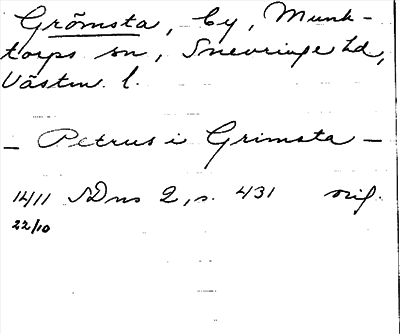 Grömsta, by, Munk-
torps sn, Snevringe hd,
Västm. l.
— Petrus i Grimsta —
1411 SDns 2, s. 431 orig.
22/10